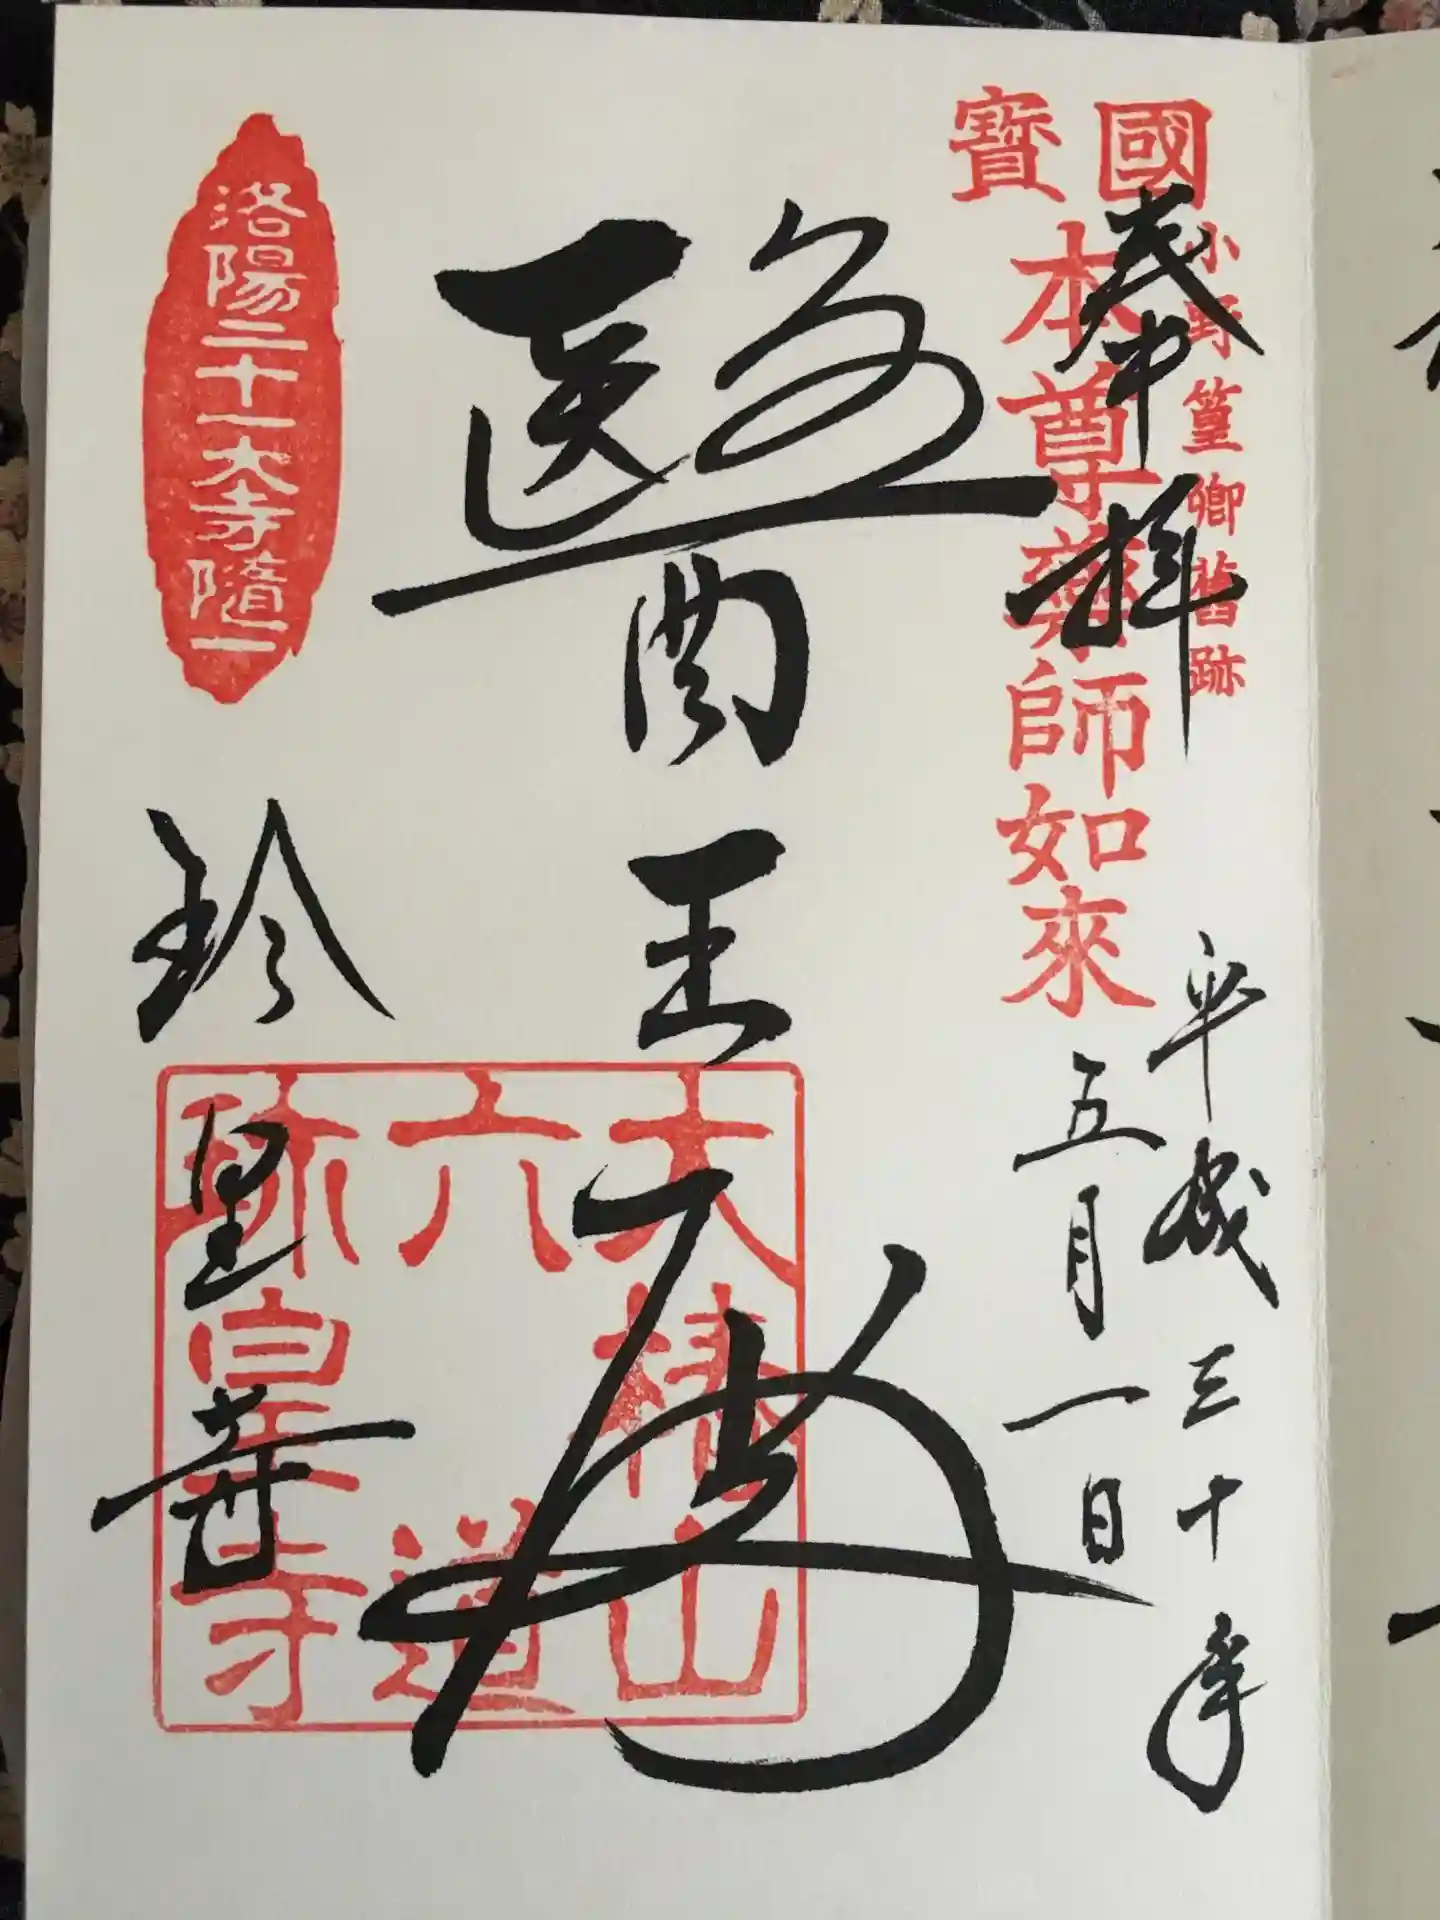 國寶
小野篁卿舊跡
本尊藥師如來
奉拜
平成三十年
五月一日
醫王殿
大椿山
六道
珍皇寺
洛陽二十一大寺隨一
珍皇寺